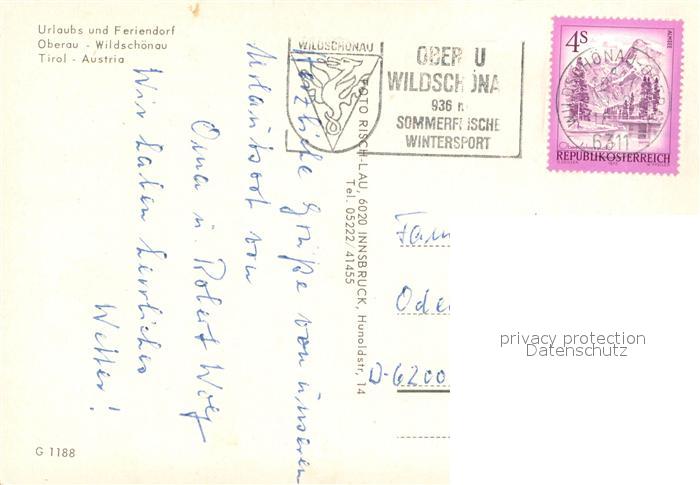 Urlaubs und Feriendorf
Oberau - Wildschönau
Tirol - Austria
WILDSCHÖNAU
OBER U
WILDSCHÖNA
936 m
SOMMERFRISCHE
WINTERSPORT
4S
ALMSEE
REPUBLIK ÖSTERREICH
6311
Herzliche Grüße von unserem
Urlaubsort von
Oma u. Robert Wolf
Wir haben herrliches
Wetter!
FOTO RISCH-LAU, 6020 INNSBRUCK, Hunoldstr. 14
Tel. 05222/41455
Fam
Ode
D-6200
privacy protection
Datenschutz
G 1188